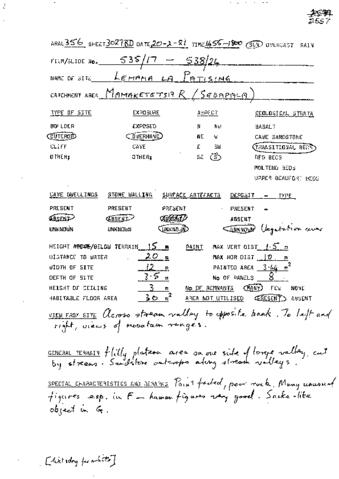 2557
AREA 356 SHEET 3027BD DATE 20-2-81 TIME 1455-1800 SUN OVERCAST RAIN
FILM/SLIDE No. 535/17 - 538/24
NAME OF SITE LEHAHA LA PATISING
CATCHMENT AREA MAMAKETETSIA R (SEBAPALA)
TYPE OF SITE EXPOSURE ASPECT GEOLOGICAL STRATA
BOULDER EXPOSED N NW BASALT
OUTCROP OVERHANG NE W CAVE SANDSTONE
CLIFF CAVE E SW TRANSITIONAL BEDS
OTHER: OTHER: SE S RED BEDS
MOLTENO BEDS
UPPER BEAUFORT BEDS
CAVE DWELLINGS STONE WALLING SURFACE ARTEFACTS DEPOSIT - TYPE
PRESENT PRESENT PRESENT PRESENT -
ABSENT ABSENT ABSENT ABSENT
UNKNOWN UNKNOWN UNKNOWN UNKNOWN Vegetation cover
HEIGHT ABOVE/BELOW TERRAIN 15 m PAINT MAX VERT DIST 1.5 m
DISTANCE TO WATER 20 m MAX HOR DIST 10 m
WIDTH OF SITE 12 m PAINTED AREA 3.64 m²
DEPTH OF SITE 3.5 m No OF PANELS 8
HEIGHT OF CEILING 3 m No OF REMNANTS MANY FEW NONE
HABITABLE FLOOR AREA 30 m² AREA NOT UTILISED PRESENT ABSENT
VIEW FROM SITE Across stream valley to opposite bank. To left and
right, views of mountain ranges.
GENERAL TERRAIN Hilly plateau area on one side of large valley, cut
by streams. Sandstone outcrops along stream valleys.
SPECIAL CHARACTERISTICS AND REMARKS Paint faded, poor rock. Many unusual
figures esp. in F - human figures very good. Snake-like
object in G.